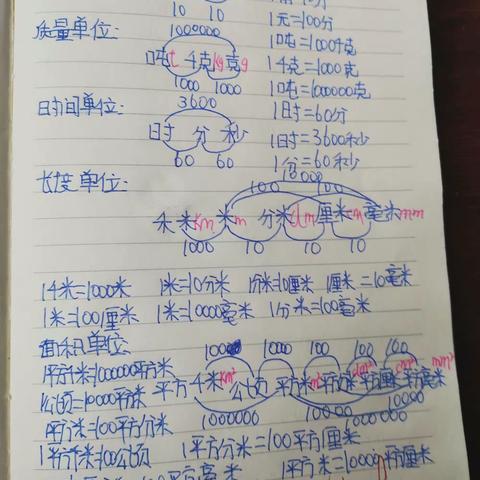 10 10
1元=100分
质量单位:
1000000
吨t 千克kg 克g
1000 1000
1吨=1000千克
1千克=1000克
1吨=1000000克
日时间单位:
3600
日时 分 秒
60 60
1日时=60分
1日时=3600秒
1分=60秒
长度单位:
100 100
千米km 米m 分米dm 厘米cm 毫米mm
1000 10 10 10
1千米=1000米 1米=10分米 1分米=10厘米 1厘米=10毫米
1米=100厘米 1米=10000毫米 1分米=100毫米
面积单位
1000 100 100 100
1平方千米=1000000平方米
平方千米km² 公顷 平方米m² 平方分米dm² 平方厘米cm² 平方毫米mm²
1公顷=10000平方米
1000000 10000 10000
1平方米=100平方分米
1平方千米=100公顷 1平方分米=100平方厘米
平方毫米 1平方米=10000平方厘米